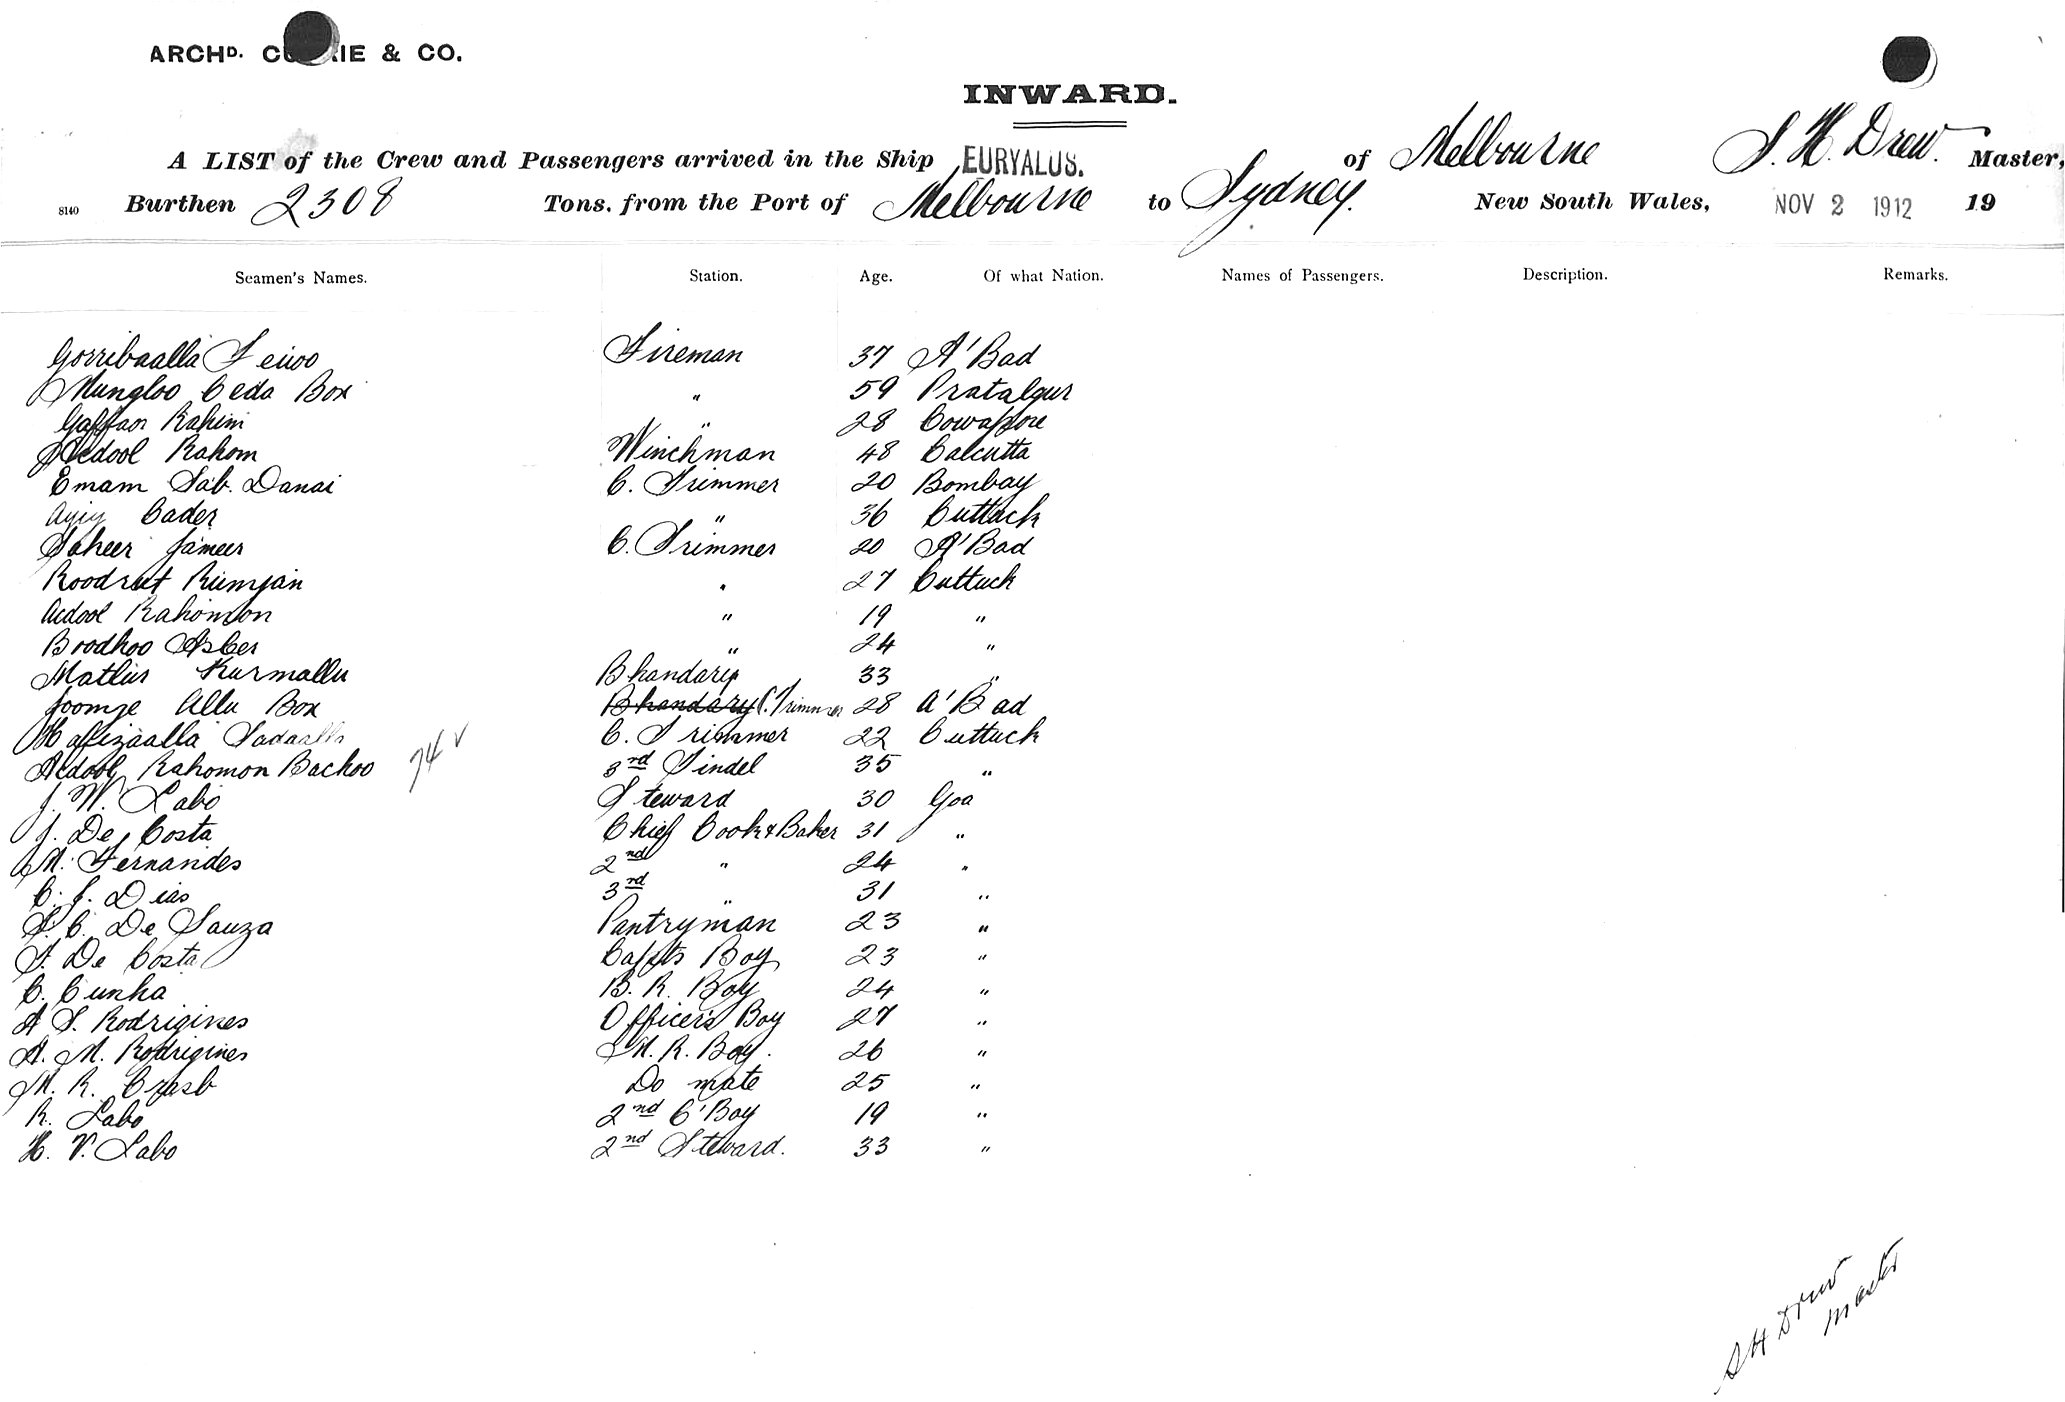 ARCHD. & CO.
INWARD.
A LIST of the Crew and Passengers arrived in the Ship EURYALUS. of Melbourne S. H. Drew. Master,
8140 Burthen 2308 Tons. from the Port of Melbourne to Sydney. New South Wales, NOV 2 1912 19
Seamen's Names. Station. Age. Of what Nation. Names of Passengers. Description. Remarks.
Gorribaalla Fireman 37 A'Bad
Mungloo Box " 59
Gaffar Rahim " 28
Rahom Winchman 48 Calcutta
Emam Sab. Danai C. Trimmer 20 Bombay
Cader " 36 Cuttack
Jameer C. Trimmer 20 A'Bad
" 27 Cuttack
Rahomon " 19 "
Boodhoo " 24 "
Kurmallu Bhandary 33 "
Box Bhandary C. Trimmer 28 A'Bad
Hafizaalla C. Trimmer 22 Cuttack
Rahomon Backoo 74 3rd Tindel 35 "
J. W. Labo Steward 30 Goa
J. De Costa Chief Cook & Baker 31 "
M. Fernandes 2nd " 24 "
C. J. Dias 3rd " 31 "
S. C. De Sauza Pantryman 23 "
S. De Costa Capt's Boy 23 "
C. Cunha B. R. Boy 24 "
A S. Rodrigines Officer's Boy 27 "
A. M. Rodrigines M. R. Boy. 26 "
M. R. Do mate 25 "
R. Labo 2nd C'Boy 19 "
H. V. Labo 2nd Steward. 33 "
S H Drew
Master